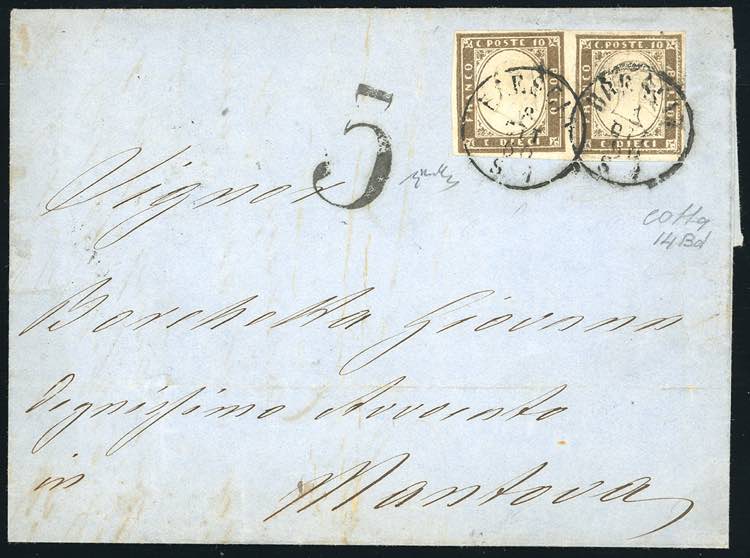 C POSTE 10 C POSTE 10
FRANCO
C DIECI C DIECI
BRESCIA
5
Signor
cotta
14Bd
Borchetta Giovanni
degnissimo Avvocato
in
Mantova